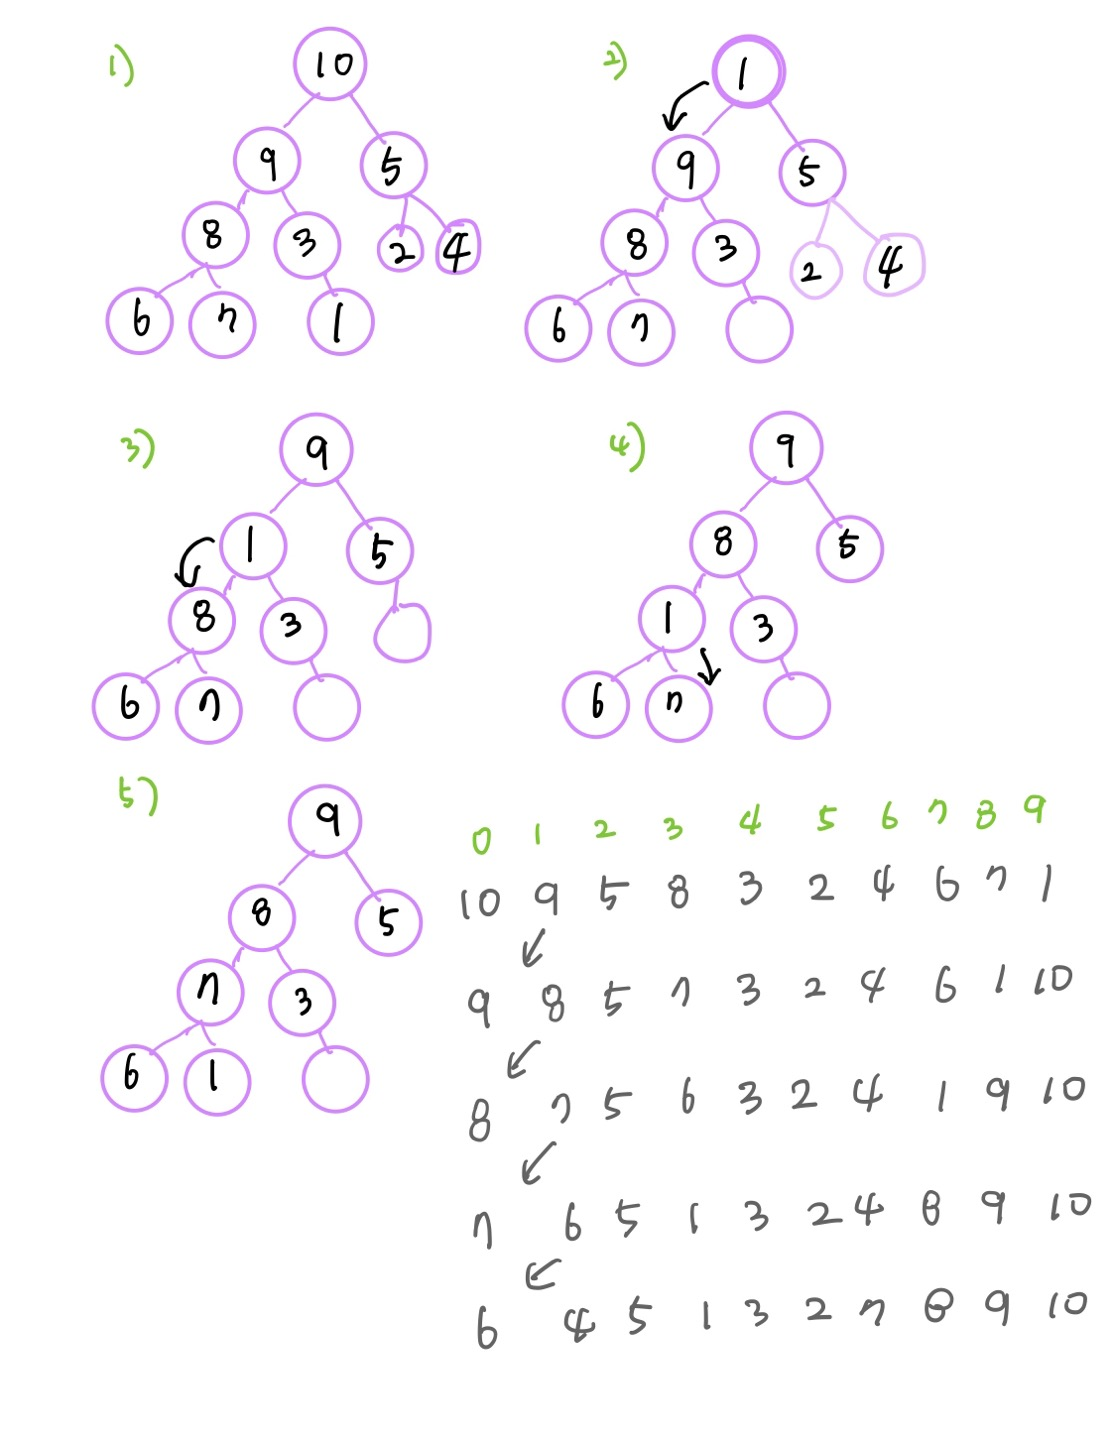 1)
10
9 5
8 3 2 4
6 7 1
2)
1
9 5
8 3 2 4
6 7
3)
9
1 5
8 3
6 7
4)
9
8 5
1 3
6 7
5)
9
8 5
7 3
6 1
0 1 2 3 4 5 6 7 8 9
10 9 5 8 3 2 4 6 7 1
9 8 5 7 3 2 4 6 1 10
8 7 5 6 3 2 4 1 9 10
7 6 5 1 3 2 4 8 9 10
6 4 5 1 3 2 7 8 9 10